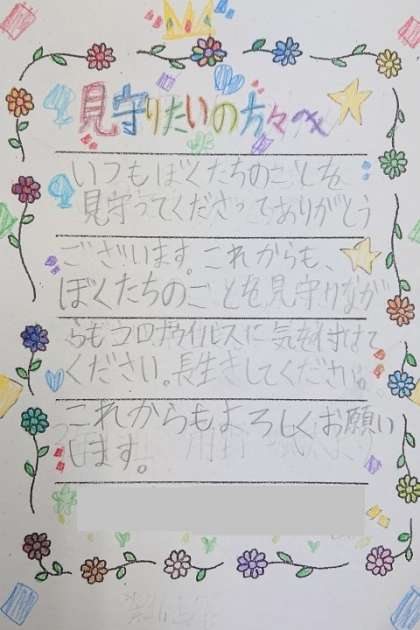 見守りたいの方々へ
いつもぼくたちのことを
見守ってくださってありがとう
ございます。これからも、
ぼくたちのことを見守りなが
らもコロナウイルスに気を付けて
ください。長生きしてください。
これからもよろしくお願い
します。